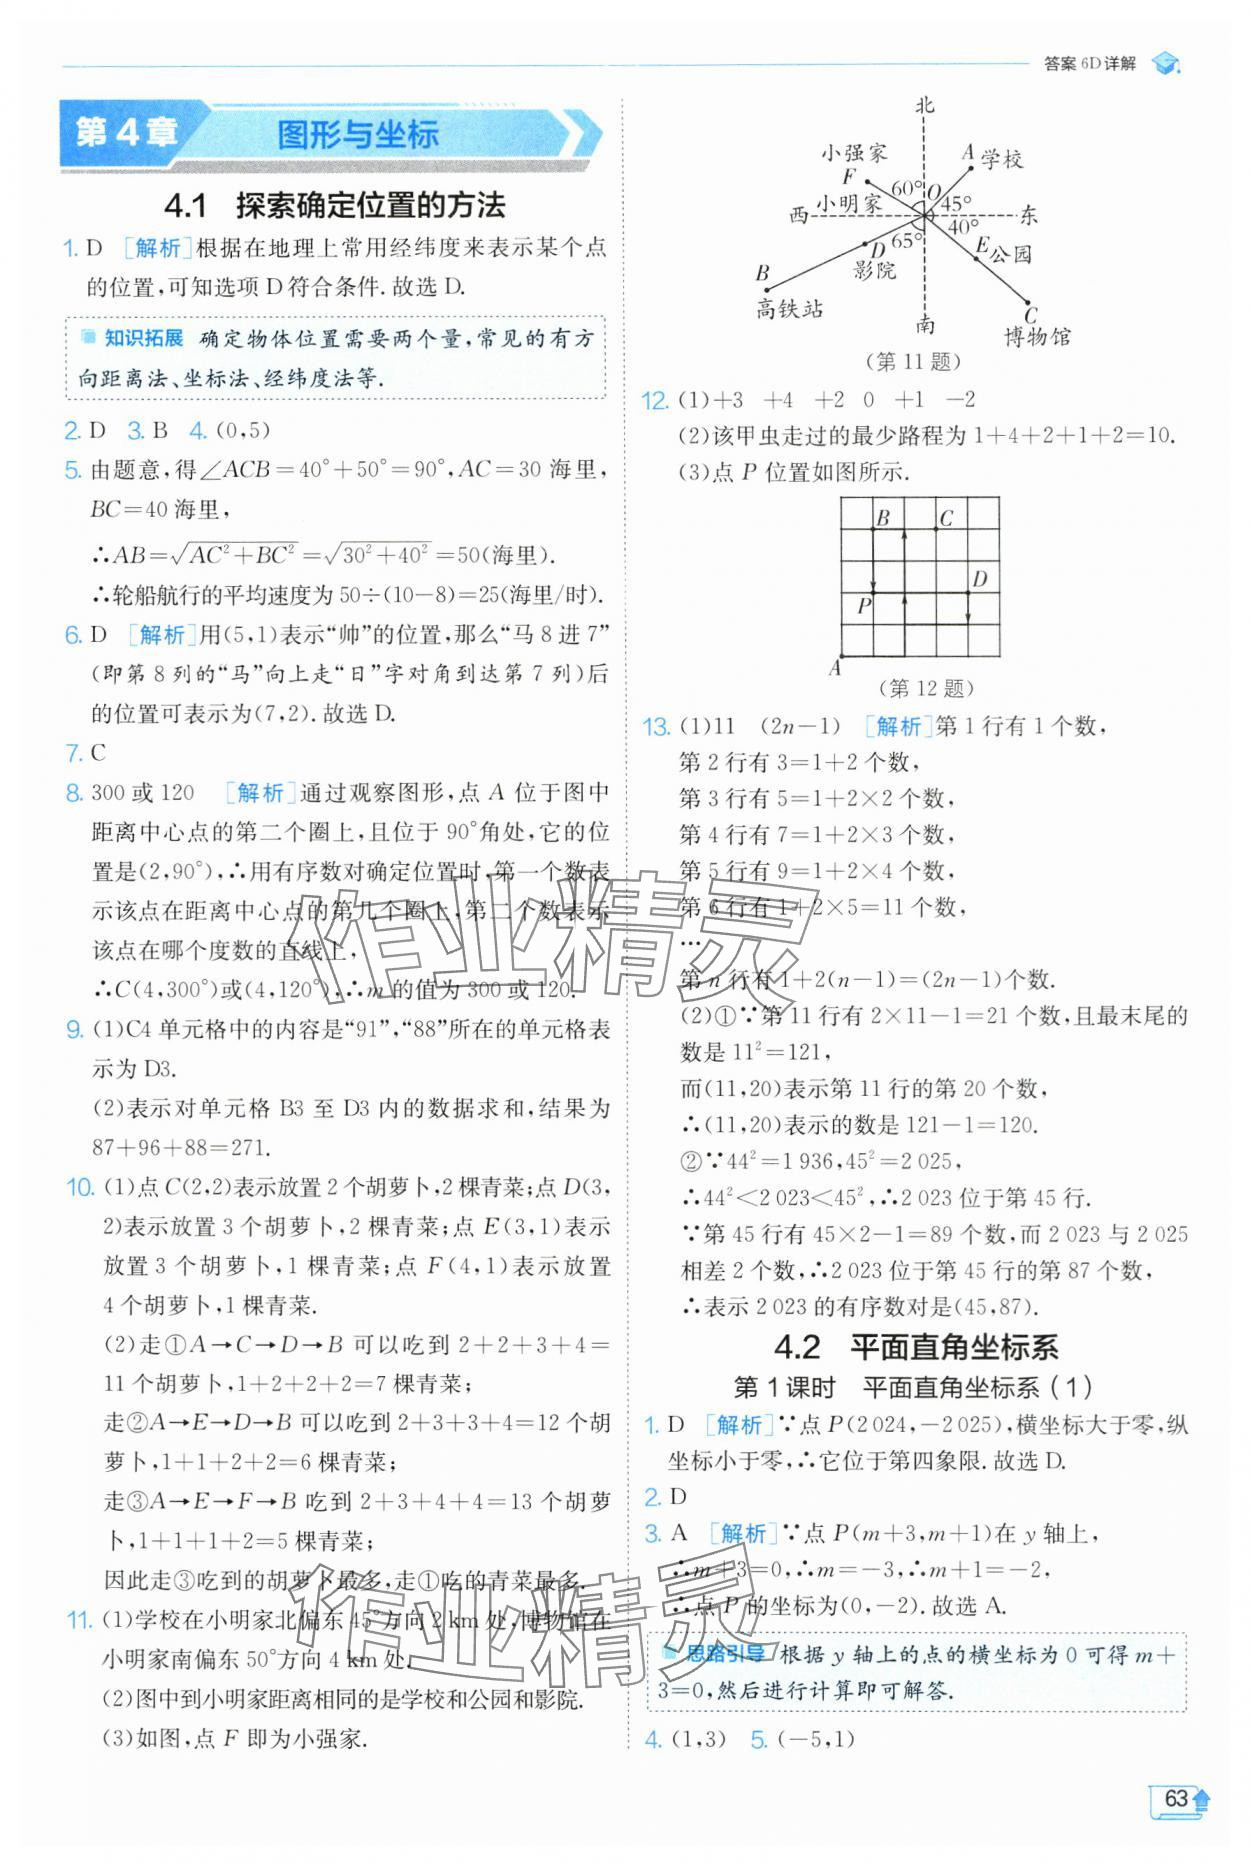 答案 6D 详解
第 4 章 图形与坐标
4.1 探索确定位置的方法
1. D [解析]根据在地理上常用经纬度来表示某个点
的位置,可知选项 D 符合条件.故选 D.
知识拓展 确定物体位置需要两个量,常见的有方
向距离法、坐标法、经纬度法等.
2. D 3. B 4. (0,5)
5. 由题意,得∠ACB=40°+50°=90°,AC=30 海里,
BC=40 海里,
∴AB=√(AC²+BC²)=√(30²+40²)=50(海里).
∴轮船航行的平均速度为 50÷(10-8)=25(海里/时).
6. D [解析]用(5,1)表示“帅”的位置,那么“马 8 进 7”
(即第 8 列的“马”向上走“日”字对角到达第 7 列)后
的位置可表示为(7,2).故选 D.
7. C
8. 300 或 120 [解析]通过观察图形,点 A 位于图中
距离中心点的第二个圈上,且位于 90°角处,它的位
置是(2,90°),∴用有序数对确定位置时,第一个数表
示该点在距离中心点的第几个圈上,第二个数表示
该点在哪个度数的直线上,
∴C(4,300°)或(4,120°),∴m 的值为 300 或 120.
9. (1)C4 单元格中的内容是“91”,“88”所在的单元格表
示为 D3.
(2)表示对单元格 B3 至 D3 内的数据求和,结果为
87+96+88=271.
10. (1)点 C(2,2)表示放置 2 个胡萝卜,2 棵青菜;点 D(3,
2)表示放置 3 个胡萝卜,2 棵青菜;点 E(3,1)表示
放置 3 个胡萝卜,1 棵青菜;点 F(4,1)表示放置
4 个胡萝卜,1 棵青菜.
(2)走①A→C→D→B 可以吃到 2+2+3+4=
11 个胡萝卜,1+2+2+2=7 棵青菜;
走②A→E→D→B 可以吃到 2+3+3+4=12 个胡
萝卜,1+1+2+2=6 棵青菜;
走③A→E→F→B 吃到 2+3+4+4=13 个胡萝
卜,1+1+1+2=5 棵青菜;
因此走③吃到的胡萝卜最多,走①吃的青菜最多.
11. (1)学校在小明家北偏东 45°方向 2 km 处,博物馆在
小明家南偏东 50°方向 4 km 处.
(2)图中到小明家距离相同的是学校和公园和影院.
(3)如图,点 F 即为小强家.
北
小强家 A 学校
F 60° O 45°
西 小明家 东
65° 40°
D E 公园
B 影院
高铁站 C
南 博物馆
(第 11 题)
12. (1)+3 +4 +2 0 +1 -2
(2)该甲虫走过的最少路程为 1+4+2+1+2=10.
(3)点 P 位置如图所示.
B C
D
P
A
(第 12 题)
13. (1)11 (2n-1) [解析]第 1 行有 1 个数,
第 2 行有 3=1+2 个数,
第 3 行有 5=1+2×2 个数,
第 4 行有 7=1+2×3 个数,
第 5 行有 9=1+2×4 个数,
第 6 行有 1+2×5=11 个数,
…
第 n 行有 1+2(n-1)=(2n-1)个数.
(2)①∵第 11 行有 2×11-1=21 个数,且最末尾的
数是 11²=121,
而(11,20)表示第 11 行的第 20 个数,
∴(11,20)表示的数是 121-1=120.
②∵44²=1 936,45²=2 025,
∴44²<2 023<45²,∴2 023 位于第 45 行.
∵第 45 行有 45×2-1=89 个数,而 2 023 与 2 025
相差 2 个数,∴2 023 位于第 45 行的第 87 个数,
∴表示 2 023 的有序数对是(45,87).
4.2 平面直角坐标系
第 1 课时 平面直角坐标系(1)
1. D [解析]∵点 P(2 024,-2 025),横坐标大于零,纵
坐标小于零,∴它位于第四象限.故选 D.
2. D
3. A [解析]∵点 P(m+3,m+1)在 y 轴上,
∴m+3=0,∴m=-3,∴m+1=-2,
∴点 P 的坐标为(0,-2).故选 A.
思路引导 根据 y 轴上的点的横坐标为 0 可得 m+
3=0,然后进行计算即可解答.
4. (1,3) 5. (-5,1)
作业精灵
作业精灵
63